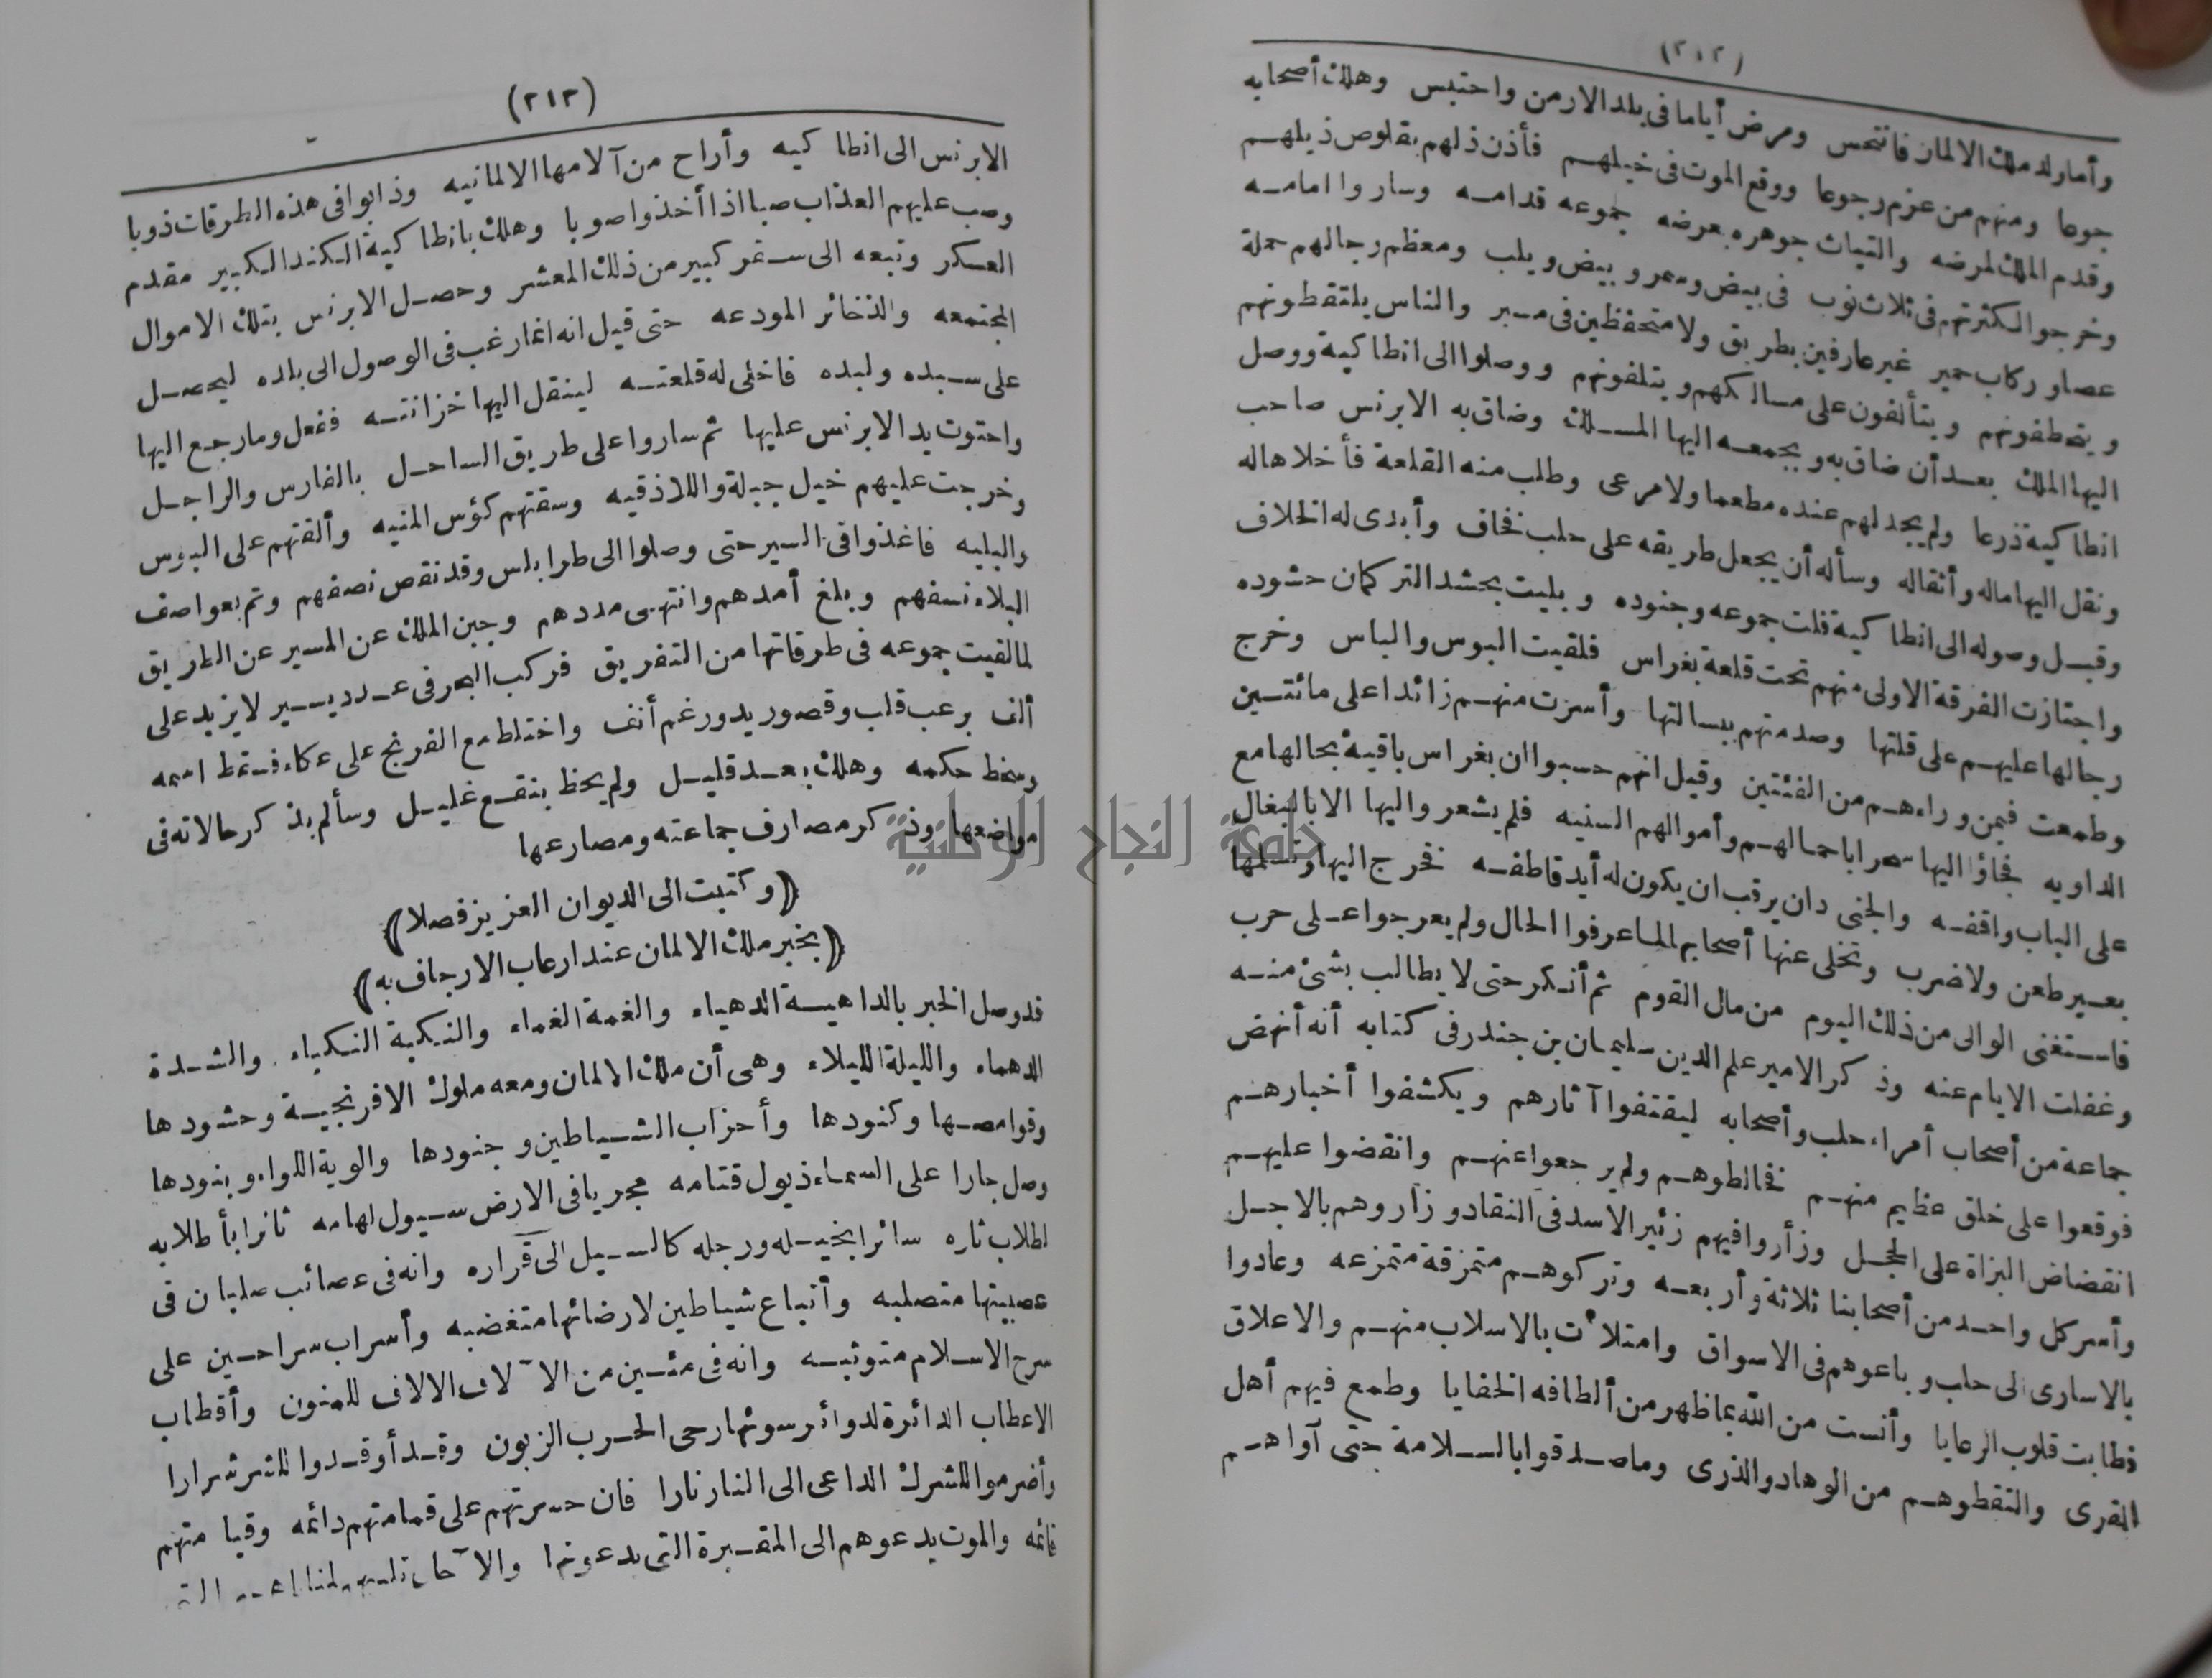 (٢١٢)
وأما ولد ملك الالمان فانتحس ومرض أياما فى بلد الارمن واحتبس وهلك أصحابه
جوعا ومنهم من عزم رجوعا ووقع الموت فى خيلهم فأذن ذلهم بقلوص ذيلهم
وقدم الملك لمرضه والتياث جوهره بعرضه جموعه قدامه وساروا امامه
وخرجوا لكثرتهم فى ثلاث نوب فى بيض وسمر وبيض ويلب ومعظم رجالهم حملة
عصا وركاب حمير غير عارفين بطريق ولا متحفظين فى مسير والناس يلتقطونهم
ويخطفونهم ويتألفون على مسالكهم ويتلفونهم ووصلوا الى انطاكية ووصل
اليها الملك بعد أن ضاق به ويجمعه اليها المسلك وضاق به الابرنس صاحب
انطاكية ذرعا ولم يجد لهم عنده مطعما ولا مرعى وطلب منه القلعة فأخلاها له
ونقل اليها ماله وأثقاله وسأله أن يجعل طريقه على حلب فخاف وأبدى له الخلاف
وقبل وصوله الى انطاكية قلت جموعه وجنوده وبليت بحشد التركمان حشوده
واجتازت الفرقة الاولى منهم تحت قلعة بغراس فلقيت البوس والباس وخرج
رجالها عليهم على قلتها وصدمتهم ببسالتها وأسرت منهم زائدا على مائتين
وطمعت فيمن وراءهم من الفئتين وقيل انهم حسبوا ان بغراس باقية بحالها مع
الداويه فجاؤا اليها سحرا باحمالهم وأموالهم السنيه فلم يشعر واليها الا بالبغال
على الباب واقفه والجنى دان يرقب ان يكون له أيد قاطفه فخرج اليها وتسلمها
بغير طعن ولا ضرب وتخلى عنها أصحابها لما عرفوا الحال ولم يعرجوا على حرب
فاستغنى الوالى من ذلك اليوم من مال القوم ثم أنكر حتى لا يطالب بشئ منه
وغفلت الايام عنه وذكر الامير علم الدين سليمان بن جندر فى كتابه أنه أنهض
جماعة من أصحاب أمراء حلب وأصحابه ليقتفوا آثارهم ويكشفوا أخبارهم
فوقعوا على خلق عظيم منهم فخالطوهم ولم يرجعوا عنهم وانقضوا عليهم
انقضاض البزاة على الحجل وزأروا فيهم زئير الاسد فى النقاد وزاروهم بالاجل
وأسر كل واحد من أصحابنا ثلاثة وأربعه وتركوهم متمزقة متمزعه وعادوا
بالاسارى الى حلب وباعوهم فى الاسواق وامتلأت بالاسلاب منهم والاعلاق
فطابت قلوب الرعايا وأنست من الله بما ظهر من ألطافه الخفايا وطمع فيهم أهل
القرى والتقطوهم من الوهاد والذرى وما صدقوا بالسلامة حتى آواهم
(٢١٣)
الابرنس الى انطاكيه وأراح من آلامها الالمانيه وذابوا فى هذه الطرقات ذوبا
وصب عليهم العذاب صبا اذا أخذوا صوبا وهلك بانطاكية الكند الكبير مقدم
العسكر وتبعه الى سقر كبير من ذلك المعشر وحصل الابرنس بتلك الاموال
المجتمعه والذخائر المودعه حتى قيل انه انما رغب فى الوصول الى بلده ليحصل
على سبده ولبده فاخلى له قلعته لينقل اليها خزانته ففعل وما رجع اليها
واحتوت يد الابرنس عليها ثم ساروا على طريق الساحل بالفارس والراجل
وخرجت عليهم خيل جبلة واللاذقيه وسقتهم كؤس المنيه وألقتهم على البوس
والبليه فاغذوا فى السير حتى وصلوا الى طرابلس وقد نقص نصفهم وتم بعواصف
البلاء نسفهم وبلغ أمدهم وانتهى مددهم وجبن الملك عن المسير عن الطريق
لما لقيت جموعه فى طرقاتها من التفريق فركب البحر فى عدد يسير لا يزيد على
ألف برعب قلب وقصور يد ورغم أنف واختلط مع الفرنج على عكاء فسقط اسمه
وسخط حكمه وهلك بعد قليل ولم يحظ بنقع غليل وسألم بذكر حالاته فى
مواضعها وذكر مصارف جماعته ومصارعها
(وكتبت الى الديوان العزيز فصلا)
(بخبر ملك الالمان عند ارعاب الارجاف به)
قد وصل الخبر بالداهية الدهياء والغمة الغماء والنكبة النكباء والشدة
الدهماء والليلة الليلاء وهى أن ملك الالمان ومعه ملوك الافرنجية وحشودها
وقوامصها وكنودها وأحزاب الشياطين وجنودها والوية اللواء وبنودها
وصل جارا على السماء ذيول قتامه مجريا فى الارض سيول لهامه ثائرا بأطلابه
لطلاب ثاره سائرا بخيله ورجله كالسيل الى قراره وانه فى عصائب صلبان فى
عصبيتها متصلبه وأتباع شياطين لارضائها متغضبه وأسراب سراحين على
سرح الاسلام متوثبه وانه فى مئين من الآلاف الالاف للمنون وأقطاب
الاعطاب الدائرة لدوائر سوئها رحى الحرب الزبون وقد أوقدوا للشر شرارا
وأضرموا للشرك الداعى الى النار نارا فان حسرتهم على قمامتهم دائمه وقيامتهم
قائمه والموت يدعوهم الى المقبرة التى يدعونها والآجال
جامعة النجاح الوطنية